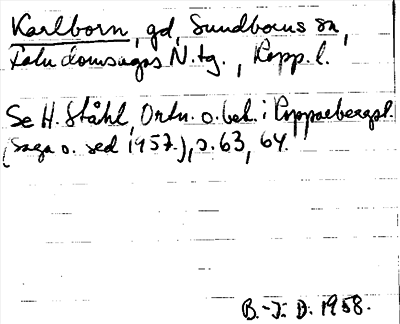 Karlborn, gd, Sundborns sn,
Falu domsagas N. tg., Kopp. l.
Se H. Ståhl, Ortn. o. beb. i Kopparbergsl.
(Saga o. sed 1957.), s. 63, 64.
B.-J. D. 1958.